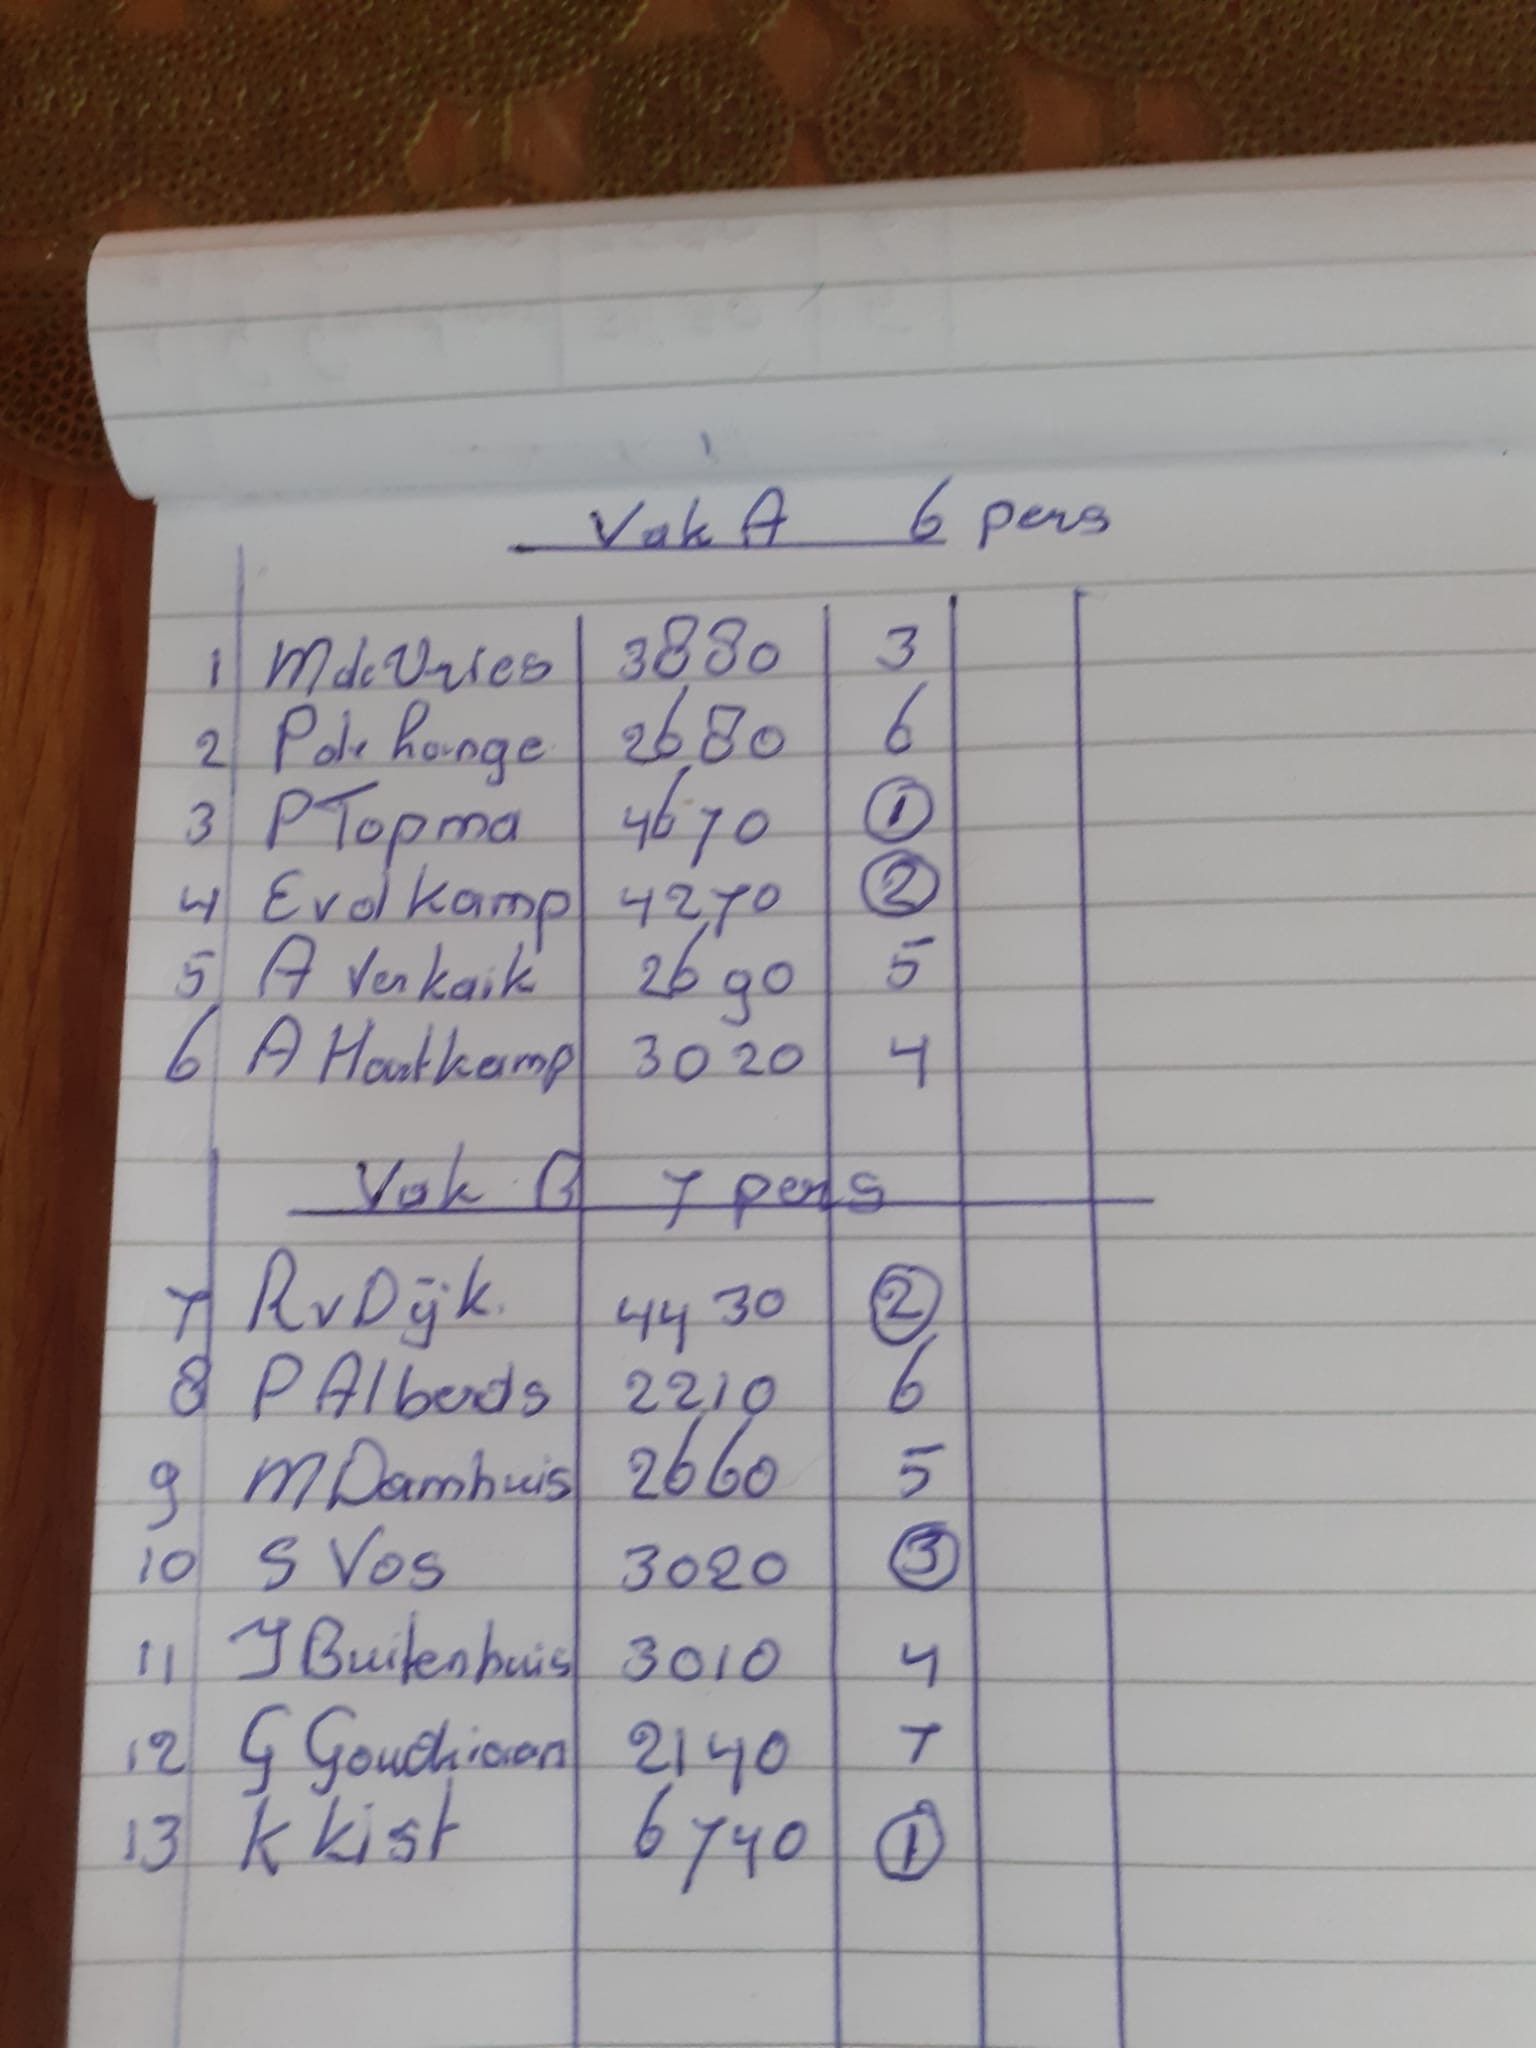 Vak A 6 pers
1 M de Vries 3880 3
2 P de Lange 2680 6
3 P Topma 4670 1
4 E vd Kamp 4270 2
5 A Verkaik 2690 5
6 A Hartkamp 3020 4
Vak B 7 pers
7 R v Dijk. 4430 2
8 P Alberds 2210 6
9 M Damhuis 2660 5
10 S Vos 3020 3
11 J Buitenhuis 3010 4
12 G 2140 7
13 K Kist 6740 1